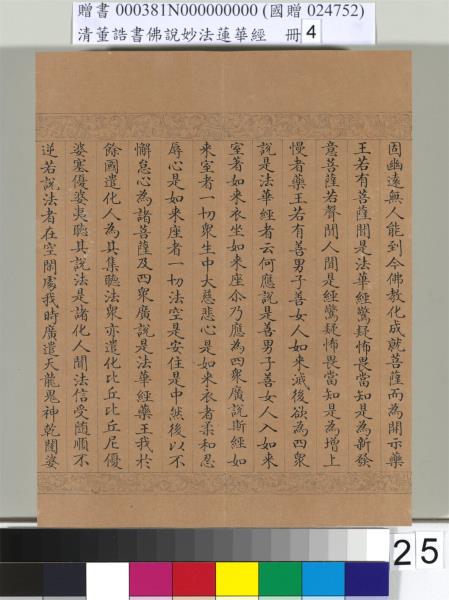 贈書 000381N000000000 (國贈 024752)
清董誥書佛說妙法蓮華經 冊 4
固幽遠無人能到今佛教化成就菩薩而為開示藥
王若有菩薩聞是法華經驚疑怖畏當知是為新發
意菩薩若聲聞人聞是經驚疑怖畏當知是為增上
慢者藥王若有善男子善女人如來滅後欲為四眾
說是法華經者云何應說是善男子善女人入如來
室著如來衣坐如來座尒乃應為四眾廣說斯經如
來室者一切眾生中大慈悲心是如來衣者柔和忍
辱心是如來座者一切法空是安住是中然後以不
懈怠心為諸菩薩及四眾廣說是法華經藥王我於
餘國遣化人為其集聽法眾亦遣化比丘比丘尼優
婆塞優婆夷聽其說法是諸化人聞法信受隨順不
逆若說法者在空閑處我時廣遣天龍鬼神乾闥婆
25